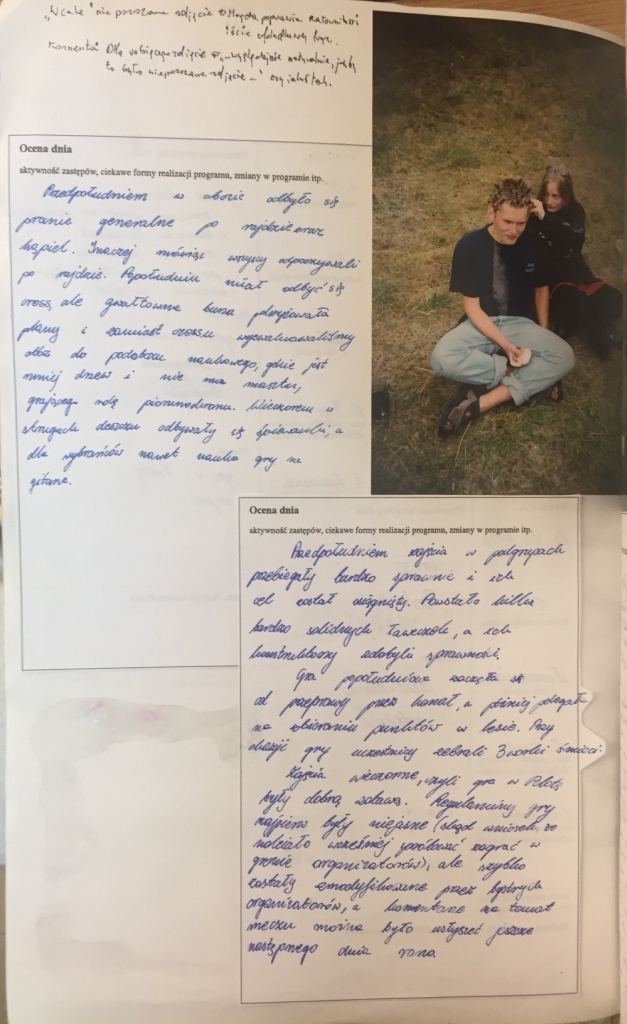 „Wcale" nie pozowane zdjęcie Magda poprawia Ratownikowi
iście
Komentarz Dla robiącego zdjęcie „wyglądajcie naturalnie, jakby
to było niepozowane zdjęcie..." czy jakoś tak.
Ocena dnia
aktywność zastępów, ciekawe formy realizacji programu, zmiany w programie itp.
Przedpołudniem w obozie odbyło się
pranie generalne po rajdzie oraz
kąpiel. Inaczej mówiąc wszyscy odpoczywali
po rajdzie. Popołudniu miał odbyć się
cross, ale gwałtowna burza pokrzyżowała
plany i zamiast crossu wyewakuowaliśmy
obóz do podobozu naukowego, gdzie jest
mniej drzew i nie ma masztu,
grającego rolę piorunochronu. Wieczorem w
strugach deszczu odbywały się śpiewanki, a
dla wybrańców nawet nauka gry na
gitarze.
Ocena dnia
aktywność zastępów, ciekawe formy realizacji programu, zmiany w programie itp.
Przedpołudniem zajęcia w podgrupach
przebiegały bardzo sprawnie i ich
cel został osiągnięty. Powstało kilka
bardzo solidnych ławeczek, a ich
konstruktorzy zdobyli sprawności.
Gra popołudniowa zaczęła się
od przeprawy przez kanał, a później polegała
na zbieraniu punktów w lesie. Przy
okazji gry uczestnicy zebrali 3 worki śmieci.
Zajęcia wieczorne, czyli gra w
były dobrą zabawą. Regulaminy gry
najpierw były niejasne (stąd wniosek, że
należało wcześniej spróbować zagrać w
gronie organizatorów), ale szybko
zostały zmodyfikowane przez bystrych
organizatorów, a komentarze na temat
meczu można było usłyszeć jeszcze
następnego dnia rana